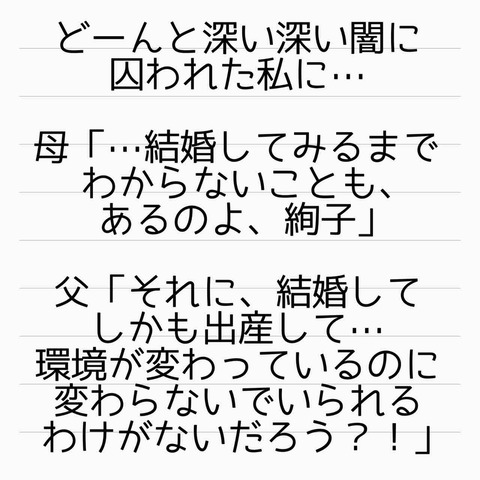 どーんと深い深い闇に
囚われた私に…
母「…結婚してみるまで
わからないことも、
あるのよ、絢子」
父「それに、結婚して
しかも出産して…
環境が変わっているのに
変わらないでいられる
わけがないだろう？！」